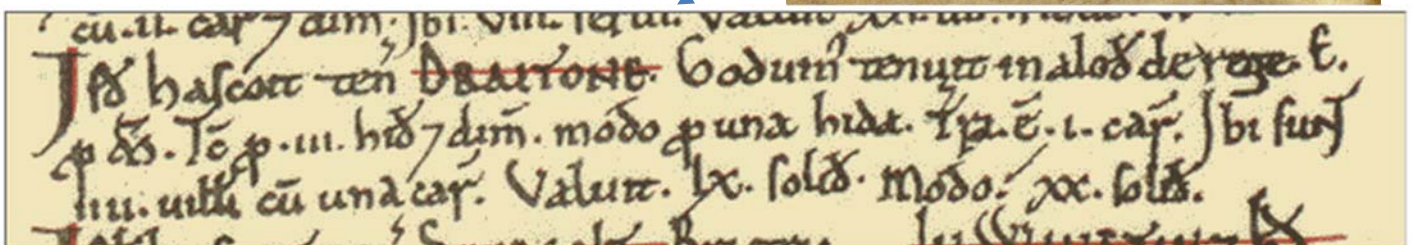 cū .ii. car̃ ⁊ dim̃. Ibi. viii.
Isd̄ hascoit teñ DRAITONE. Goduin̄ tenuit in alod̄ de rege. E.
p od̄. Tc̄ p .iii. hid̄ ⁊ dim̃. modo p una hida. Tr̄a. ē .i. car̃. Ibi sunt
iiii. uilli cū una car̃. Valuit. lx. solid̄. Modo. xx. solid̄.